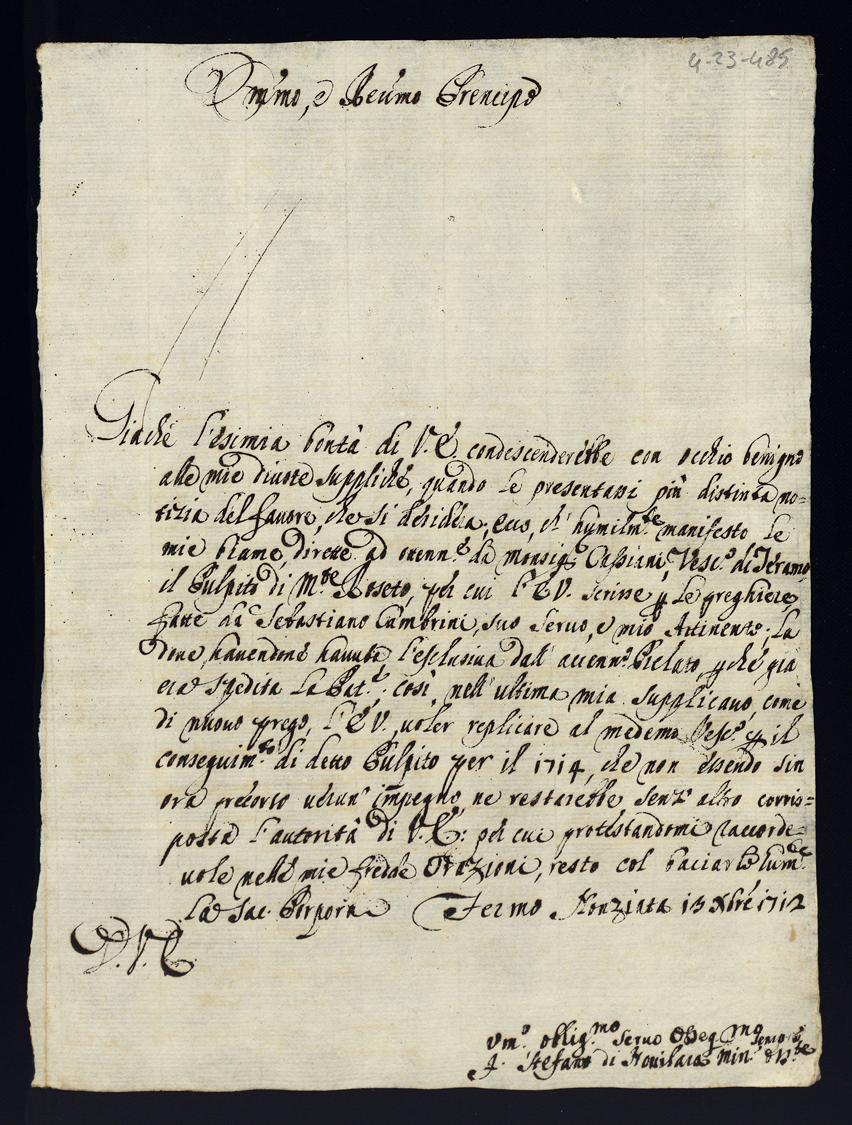 4-23-485
Em̃mo, e Reũmo Prencipe
Giache l'esimia bontà di V. E. condescenderebbe con occhio benigno
alle mie divote suppliche, quando le presentassi più distinta no=
tizia del favore, che si desidera; ecco, ch' humilm.te manifesto le
mie brame, dirette ad ottenn.e da monsig.r Cassiani, Vesc.o di Teramo
il Pulpito di M.te Roseto, per cui l'E V. scrisse p le preghiere
fatte da Sebastiano Cambrini, suo servo, e mio Attinente. La
dove, havendone havuta l'esclusiva dall' accenn.o Prelato, p che già
era spedita la Pat.e: così, nell' ultima mia supplicavo, come
di nuovo prego, l'E V. voler replicare al medemo Vesc.o p il
conseguim.to di detto Pulpito per il 1714, che non essendo sin
ora precorso verun' impegno, ne restarebbe senz' altro corris=
posta l'autorità di V. E.: per cui protestandomi raccorde=
vole nelle mie fredde Orazioni, resto col baciarle hum.e
la Sac. Porpora Fermo Nonziata 13 Xbre 1712
D. V. E.
Vm.o oblig.mo servo Osseq.mo
F. Stefano di Novilara Min.e Oss.te